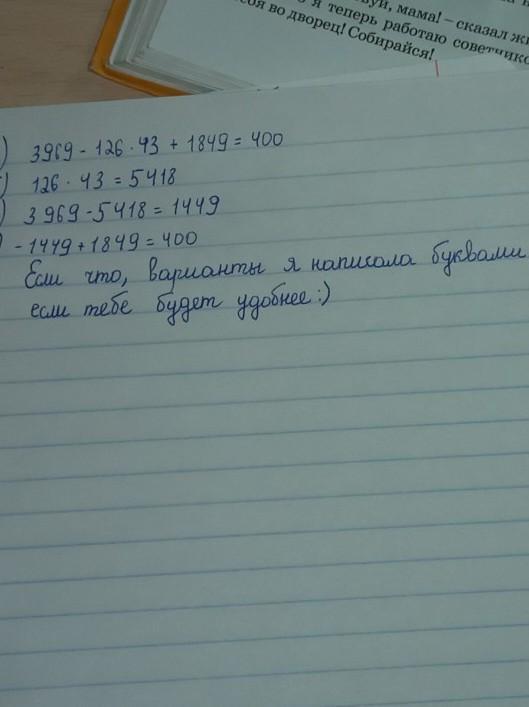 уй, мама! – сказал
я теперь работаю советнико
во дворец! Собирайся!
) 3969 - 126 · 43 + 1849 = 400
) 126 · 43 = 5418
) 3969 - 5418 = 1449
) -1449 + 1849 = 400
Если что, варианты я написала буквами
если тебе будет удобнее :)